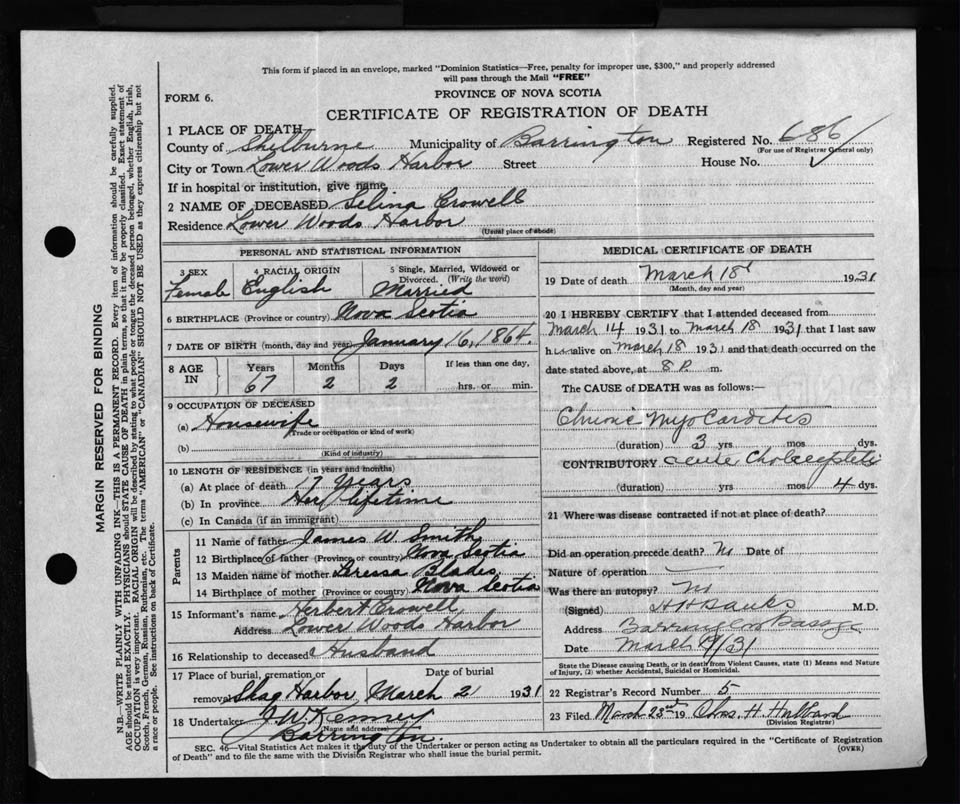 This form if placed in an envelope, marked "Dominion Statistics—Free, penalty for improper use, $300," and properly addressed
will pass through the Mail "FREE"
FORM 6.
PROVINCE OF NOVA SCOTIA
CERTIFICATE OF REGISTRATION OF DEATH
1 PLACE OF DEATH
County of Shelburne Municipality of Barrington Registered No. 686
(For use of Registrar General only)
City or Town Lower Woods Harbor Street House No.
If in hospital or institution, give name
2 NAME OF DECEASED Selina Crowell
Residence Lower Woods Harbor
(Usual place of abode)
PERSONAL AND STATISTICAL INFORMATION
3 SEX
Female
4 RACIAL ORIGIN
English
5 Single, Married, Widowed or
Divorced. (Write the word)
Married
6 BIRTHPLACE (Province or country) Nova Scotia
7 DATE OF BIRTH (month, day and year) January 16, 1864.
8 AGE IN
Years Months Days If less than one day,
67 2 2 hrs. or min.
9 OCCUPATION OF DECEASED
(a) Housewife
(Trade or occupation or kind of work)
(b)
(Kind of industry)
10 LENGTH OF RESIDENCE (in years and months)
(a) At place of death 17 Years
(b) In province Her lifetime
(c) In Canada (if an immigrant)
Parents
11 Name of father James W. Smith
12 Birthplace of father (Province or country) Nova Scotia
13 Maiden name of mother Blades
14 Birthplace of mother (Province or country) Nova Scotia
15 Informant's name Herbert Crowell,
Address Lower Woods Harbor
16 Relationship to deceased Husband
17 Place of burial, cremation or Date of burial
removal Shag Harbor March 21 1931
18 Undertaker J. W. Kenney
(Name and address)
Barrington.
MEDICAL CERTIFICATE OF DEATH
19 Date of death March 18 1931
(Month, day and year)
20 I HEREBY CERTIFY that I attended deceased from
March 14 1931 to March 18 1931 that I last saw
h er alive on March 18 1931 and that death occurred on the
date stated above, at 8 P. m.
The CAUSE of DEATH was as follows:—
Chronic Myocarditis
(duration) 3 yrs mos dys.
CONTRIBUTORY acute
(duration) yrs mos 4 dys.
21 Where was disease contracted if not at place of death?
Did an operation precede death? no Date of
Nature of operation —
Was there an autopsy? no
(Signed) Banks M.D.
Address Barrington Passage
Date March /31
State the Disease causing Death, or in death from Violent Causes, state (1) Means and Nature
of Injury, (2) whether Accidental, Suicidal or Homicidal.
22 Registrar's Record Number 5
23 Filed March 23rd 19 Chas. H. Hubbard
(Division Registrar)
SEC. 46—Vital Statistics Act makes it the duty of the Undertaker or person acting as Undertaker to obtain all the particulars required in the "Certificate of Registration
of Death" and to file the same with the Division Registrar who shall issue the burial permit.
(OVER)
MARGIN RESERVED FOR BINDING
N.B.—WRITE PLAINLY WITH UNFADING INK—THIS IS A PERMANENT RECORD. Every item of information should be carefully supplied.
AGE should be stated EXACTLY. PHYSICIANS should STATE CAUSE OF DEATH in plain terms, so that it may be properly classified. Exact statement of
OCCUPATION is very important. RACIAL ORIGIN will be described by stating to what people or tongue the deceased person belonged, whether English, Irish,
Scotch, French, German, Russian, Ruthenian, etc. The terms "AMERICAN" or "CANADIAN" SHOULD NOT BE USED as they express citizenship but not
a race or people. See instructions on back of Certificate.